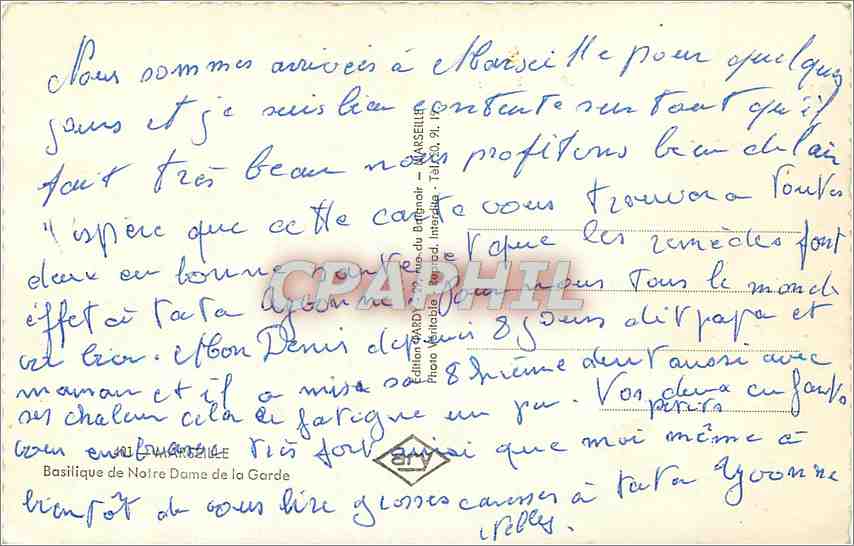 Nous sommes arrivés à Marseille pour quelques
jours et je suis bien contente surtout qu'il
fait très beau nous profitons bien de l'air
j'espère que cette carte vous trouvera toutes
deux en bonne santé et que les remèdes font
effet à tata Yvonne. Pour nous tous le monde
va bien. Mon Denis depuis 8 jours dit papa et
maman et il a mise sa 8 hième dent aussi avec
ses chaleur cela le fatigue un peu. Vos deux enfants
petits
vous embrasse très fort ainsi que moi même à
bientôt de vous lire grosses caresses à tata Yvonne
Nelly.
MARSEILLE
Basilique de Notre Dame de la Garde
Edition GARDY - 22, rue du Baignoir - MARSEILLE
Photo Véritable - Reprod. Interdite - Tél. 20. 91. 19
ary
CPARHIL